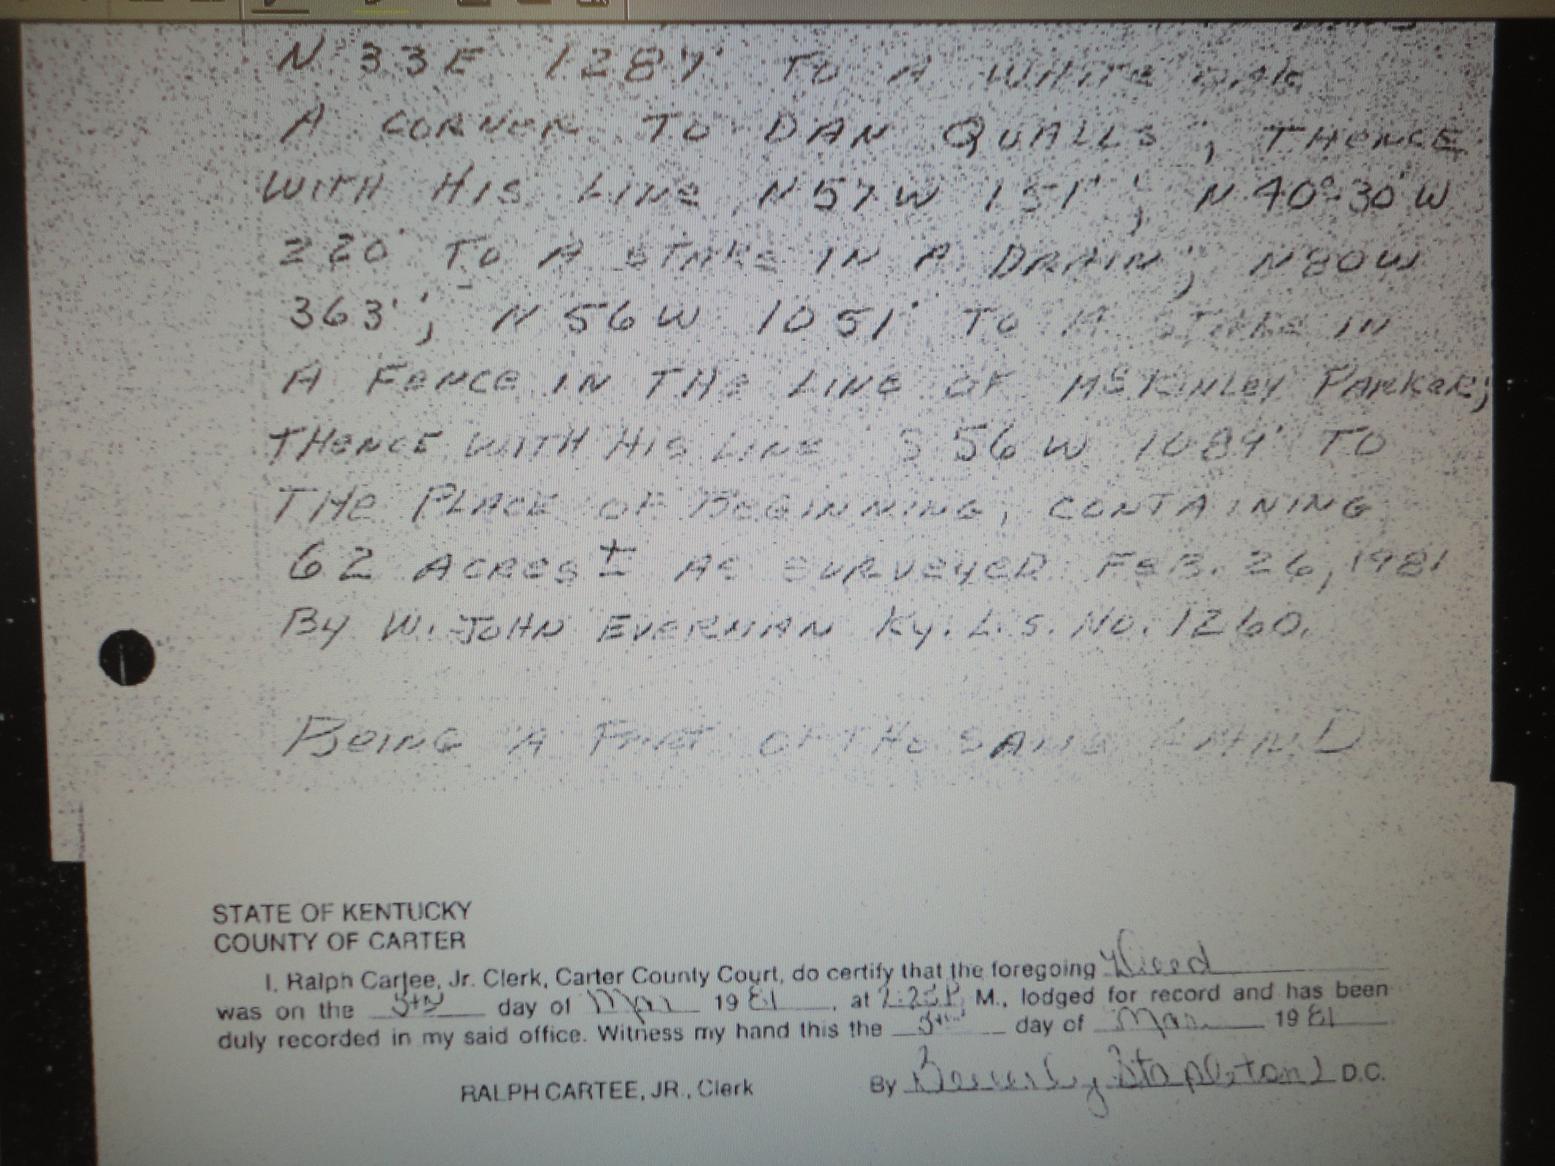 N 33E 1287' TO A WHITE OAK
A CORNER TO DAN QUALLS; THENCE
WITH HIS LINE N57W 151'; N 40°-30'W
220' TO A STAKE IN A DRAIN; N80W
363'; N 56W 1051' TO A STAKE IN
A FENCE IN THE LINE OF McKINLEY PARKER;
THENCE WITH HIS LINE S 56 W 1089' TO
THE PLACE OF BEGINNING, CONTAINING
62 ACRES ± AS SURVEYED FEB. 26, 1981
BY W. JOHN EVERMAN KY. L.S. NO. 1260.
BEING A PART OF THE SAME LAND
STATE OF KENTUCKY
COUNTY OF CARTER
I, Ralph Cartee, Jr. Clerk, Carter County Court, do certify that the foregoing Deed
was on the 5th day of Mar 1981, at 2:25 P. M., lodged for record and has been
duly recorded in my said office. Witness my hand this the 5th day of Mar. 1981
RALPH CARTEE, JR., Clerk By Beverly Stapleton D.C.